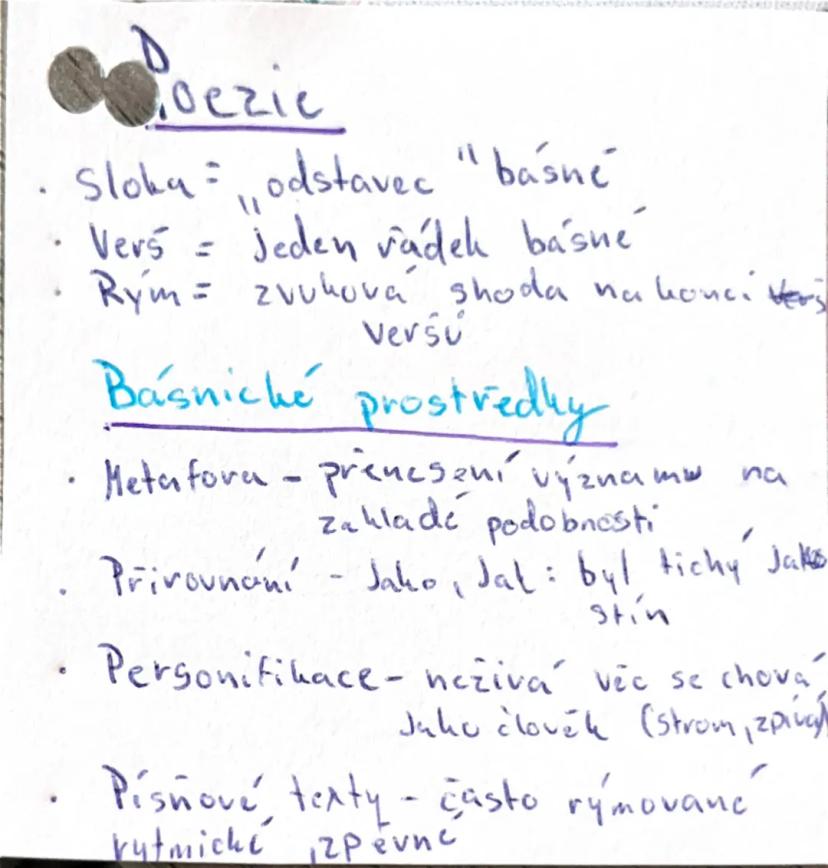 Poezie
· Sloka = „odstavec" básně
· Verš = Jeden řádek básně
· Rým = zvuková shoda na konci verš
veršů
Básnické prostředky
· Metafora - přenesení významu na
základě podobnosti
· Přirovnání - Jako, Jak: byl tichý Jako
stín
· Personifikace - neživá věc se chová
Jako člověk (strom, zpívá)
· Písňové texty - často rýmované
rytmické, zpěvné